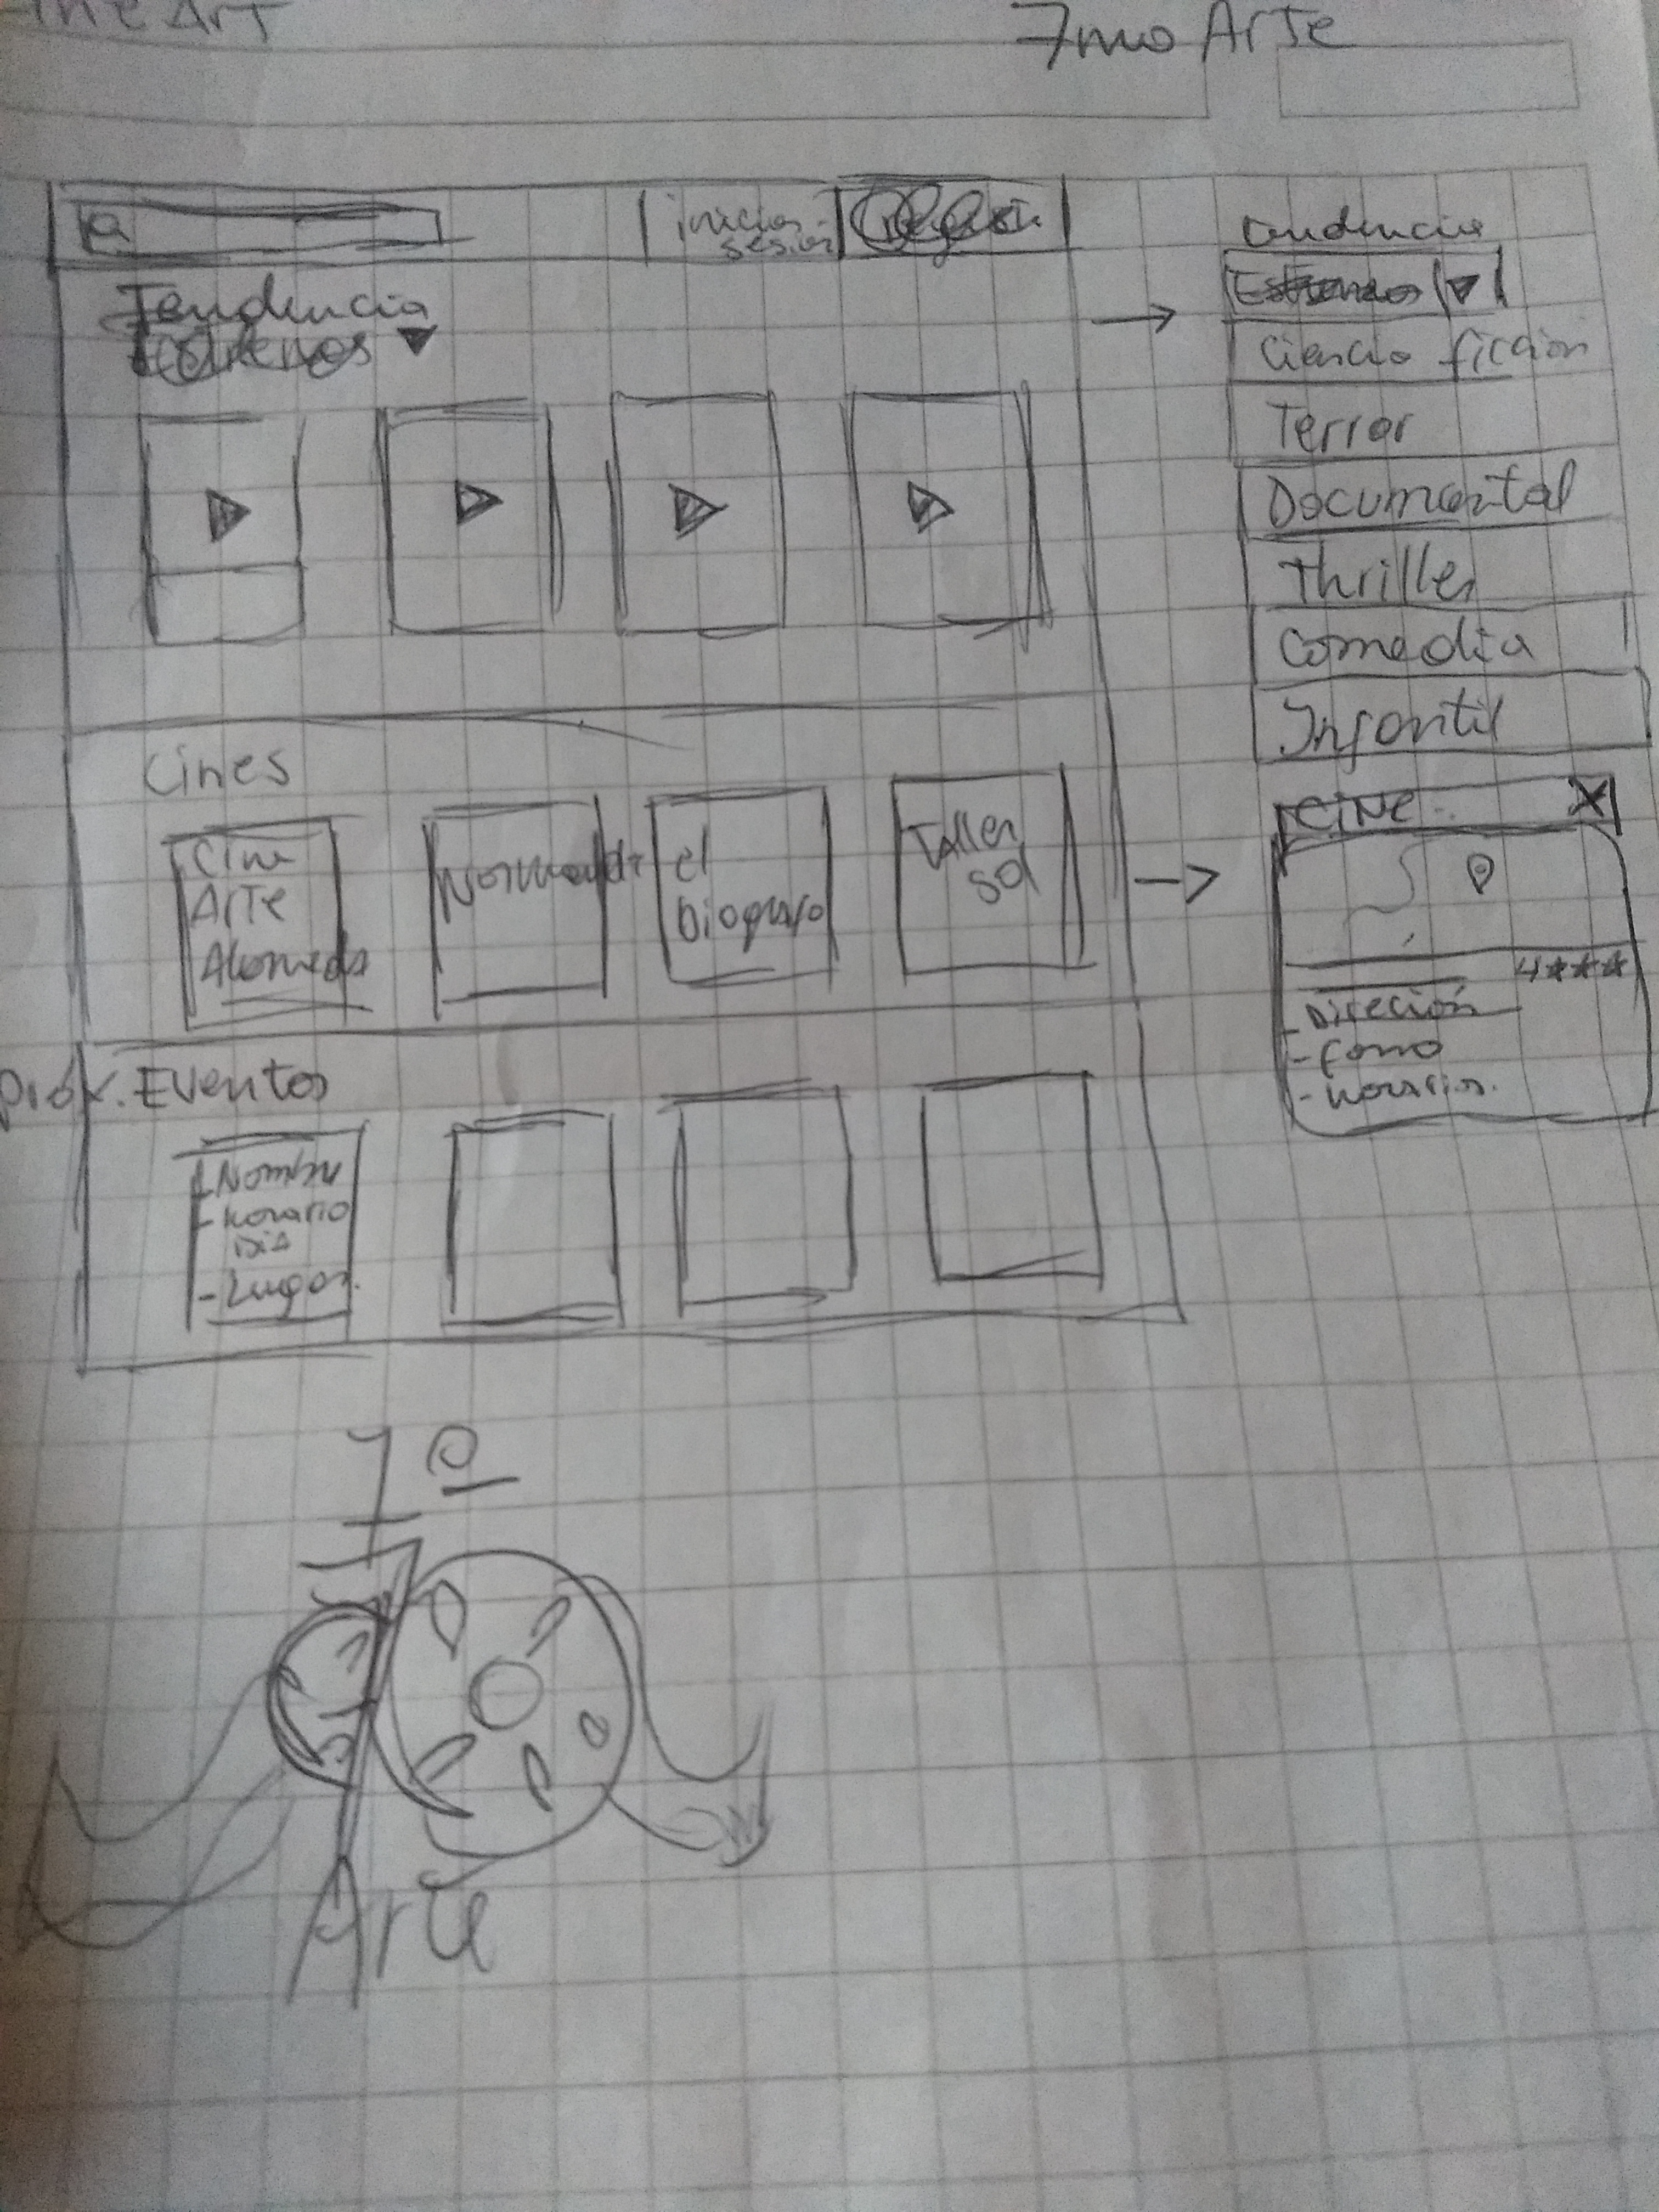 7mo Arte
iniciar
sesion
Tendencia
Estrenos
Cines
Cine
Arte
Alameda
Normandi
el
biografo
Taller
sol
Prox. Eventos
- Nombre
- Horario
Dia
- Lugar.
tendencia
Estrenos
Ciencia ficcion
Terror
Documental
thriller
Comedia
Infantil
CINE
4★★★
- Direción
- fono
- horarios.
7º
Arte